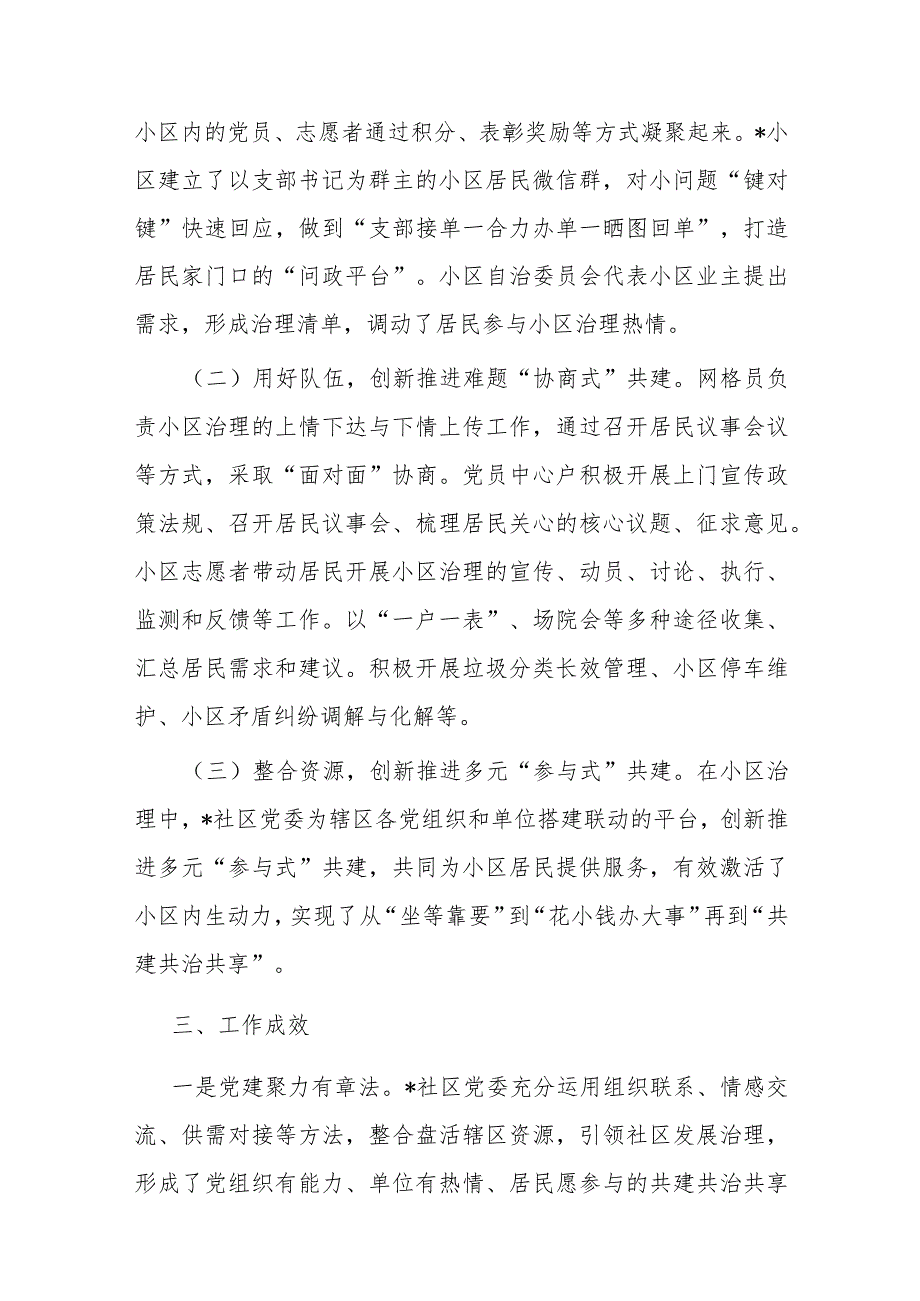 小区内的党员、志愿者通过积分、表彰奖励等方式凝聚起来。*小
区建立了以支部书记为群主的小区居民微信群，对小问题“键对
键”快速回应，做到“支部接单一合力办单一晒图回单”，打造
居民家门口的“问政平台”。小区自治委员会代表小区业主提出
需求，形成治理清单，调动了居民参与小区治理热情。
（二）用好队伍，创新推进难题“协商式”共建。网格员负
责小区治理的上情下达与下情上传工作，通过召开居民议事会议
等方式，采取“面对面”协商。党员中心户积极开展上门宣传政
策法规、召开居民议事会、梳理居民关心的核心议题、征求意见。
小区志愿者带动居民开展小区治理的宣传、动员、讨论、执行、
监测和反馈等工作。以“一户一表”、场院会等多种途径收集、
汇总居民需求和建议。积极开展垃圾分类长效管理、小区停车维
护、小区矛盾纠纷调解与化解等。
（三）整合资源，创新推进多元“参与式”共建。在小区治
理中，*社区党委为辖区各党组织和单位搭建联动的平台，创新推
进多元“参与式”共建，共同为小区居民提供服务，有效激活了
小区内生动力，实现了从“坐等靠要”到“花小钱办大事”再到“共
建共治共享”。
三、工作成效
一是党建聚力有章法。*社区党委充分运用组织联系、情感交
流、供需对接等方法，整合盘活辖区资源，引领社区发展治理，
形成了党组织有能力、单位有热情、居民愿参与的共建共治共享